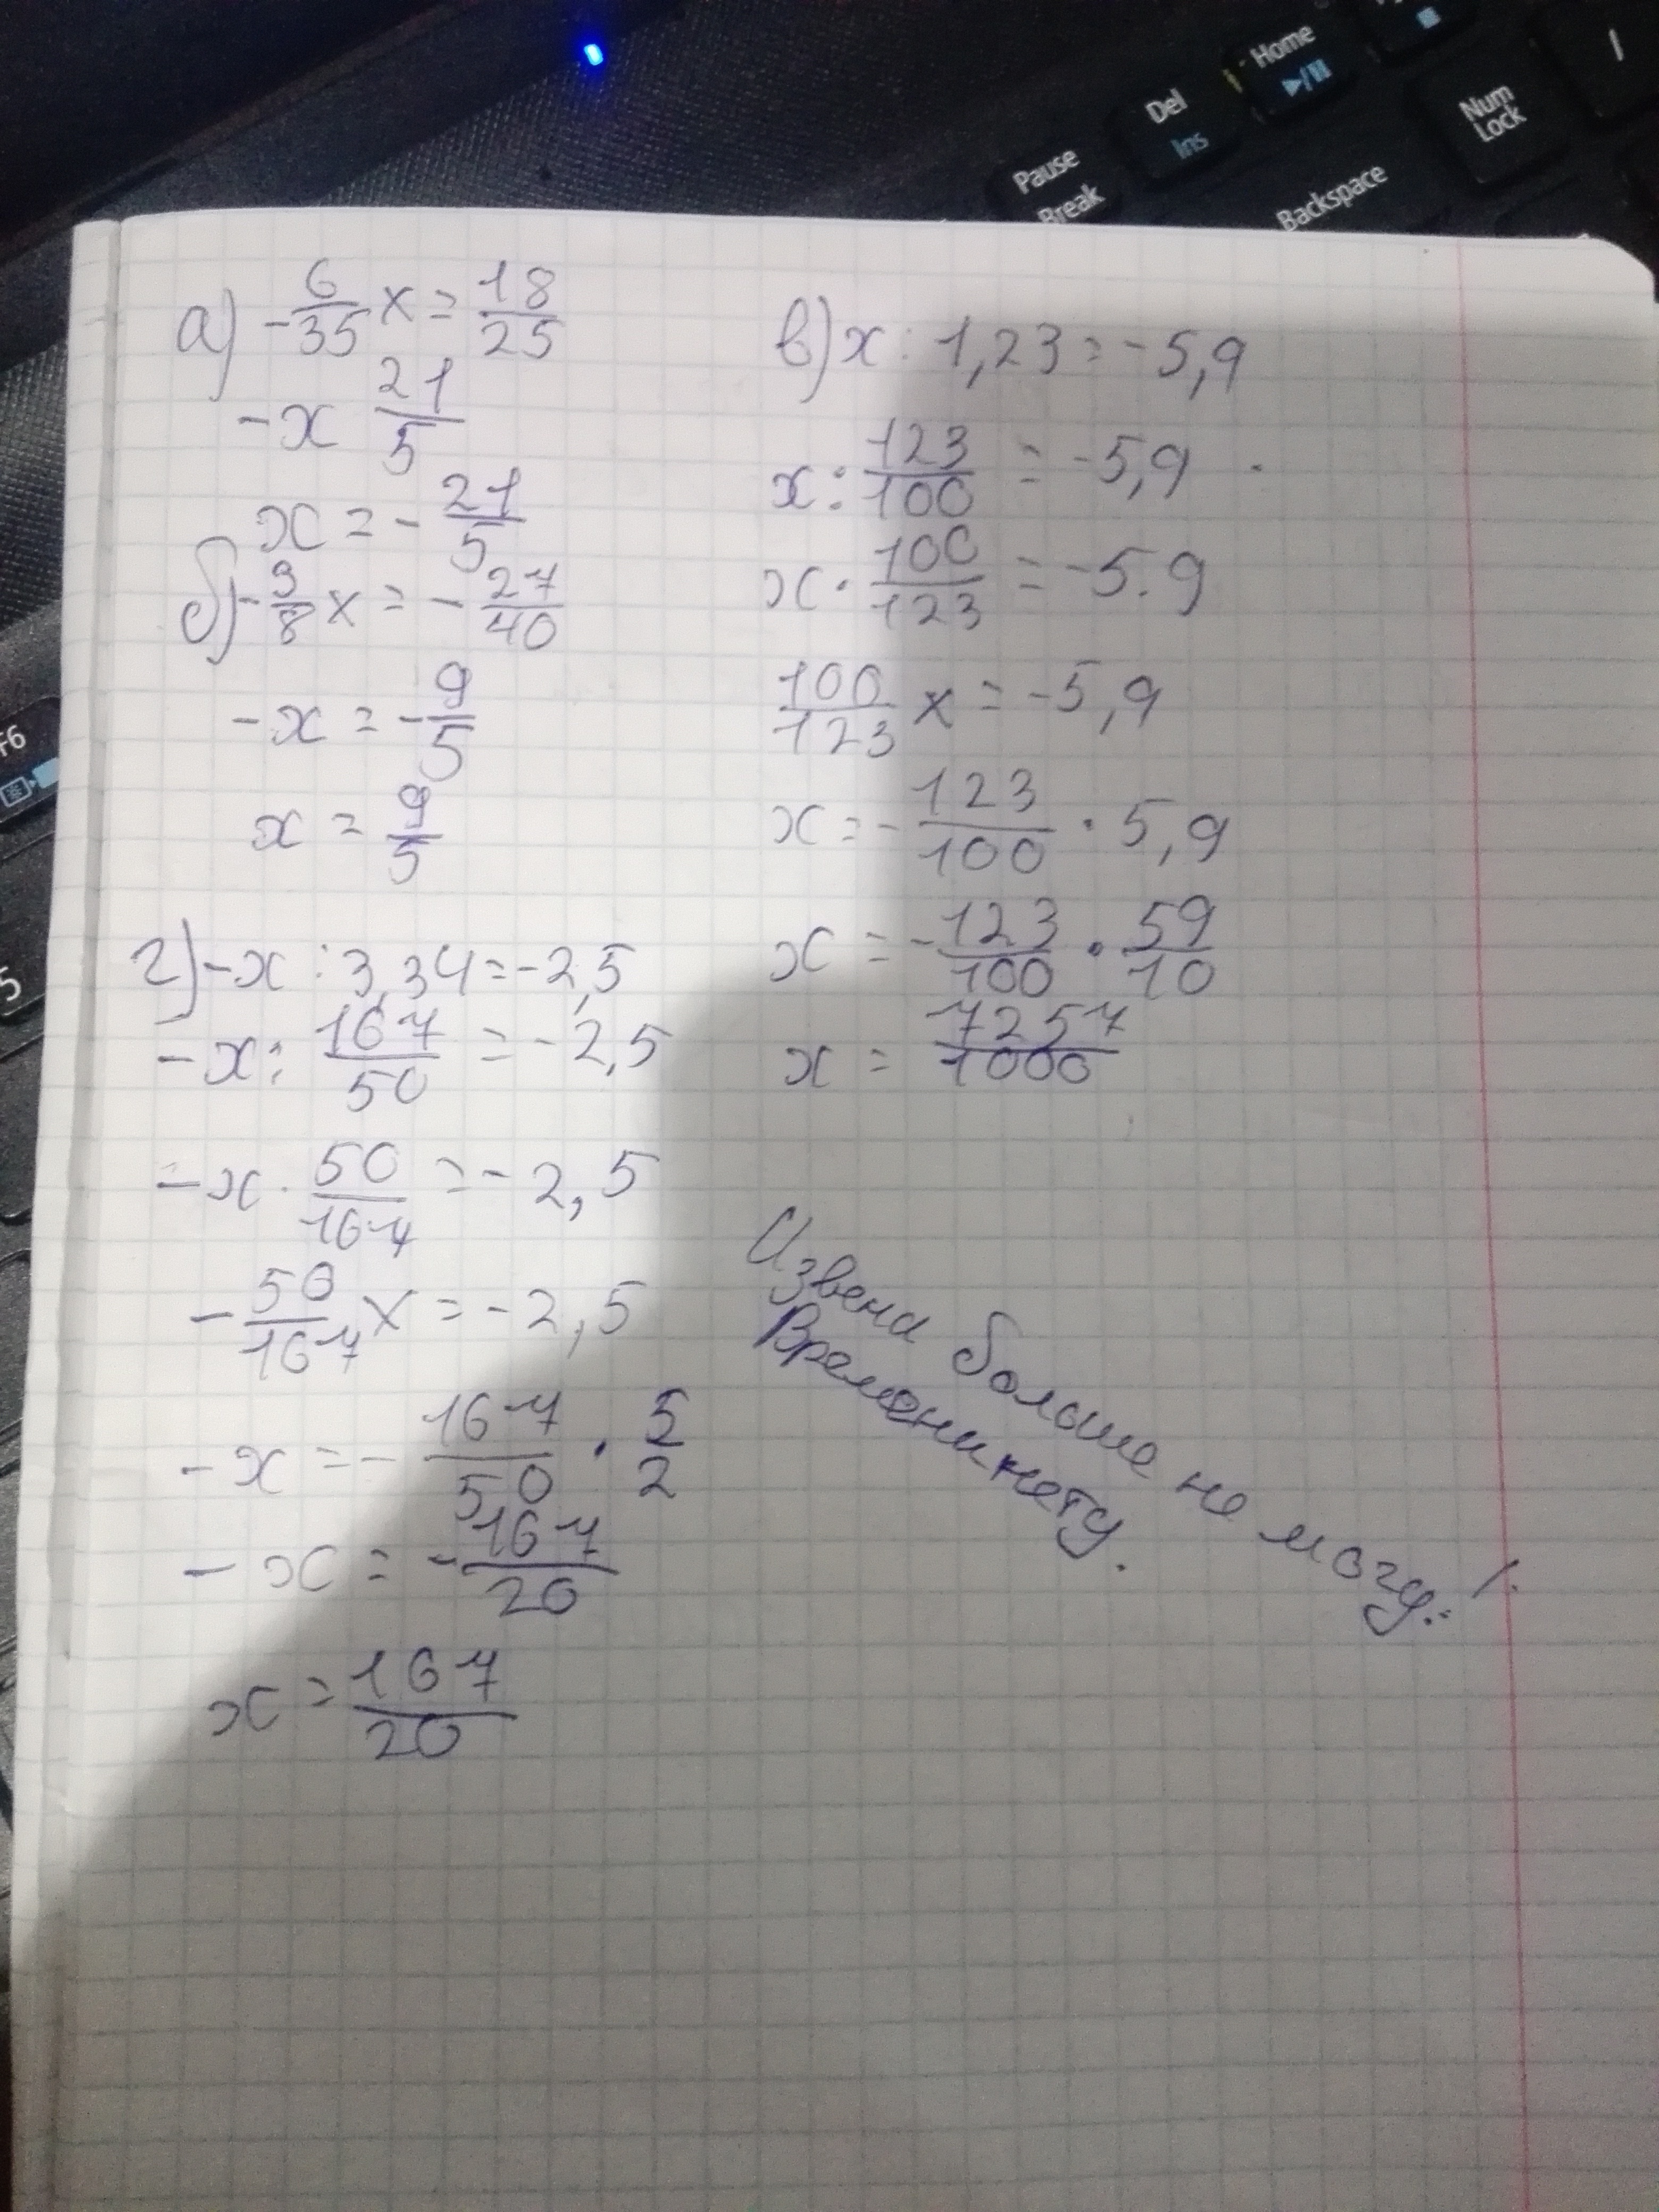 Home
Del
Ins
Num
Lock
Pause
Break
Backspace
F6
5
а) -6/35 x = 18/25
-x 21/5
x = - 21/5
б) - 3/8 x = - 27/40
-x = - 9/5
x = 9/5
г) -x : 3,34 = -2,5
-x : 167/50 = -2,5
-x · 50/167 = -2,5
- 50/167 x = -2,5
-x = - 167/50 · 5/2
-x = - 167/20
x = 167/20
в) x : 1,23 = -5,9
x : 123/100 = -5,9
x · 100/123 = -5.9
100/123 x = -5,9
x = - 123/100 · 5,9
x = - 123/100 · 59/10
x = 7257/1000
Извени больше не могу :(
Времени нету.